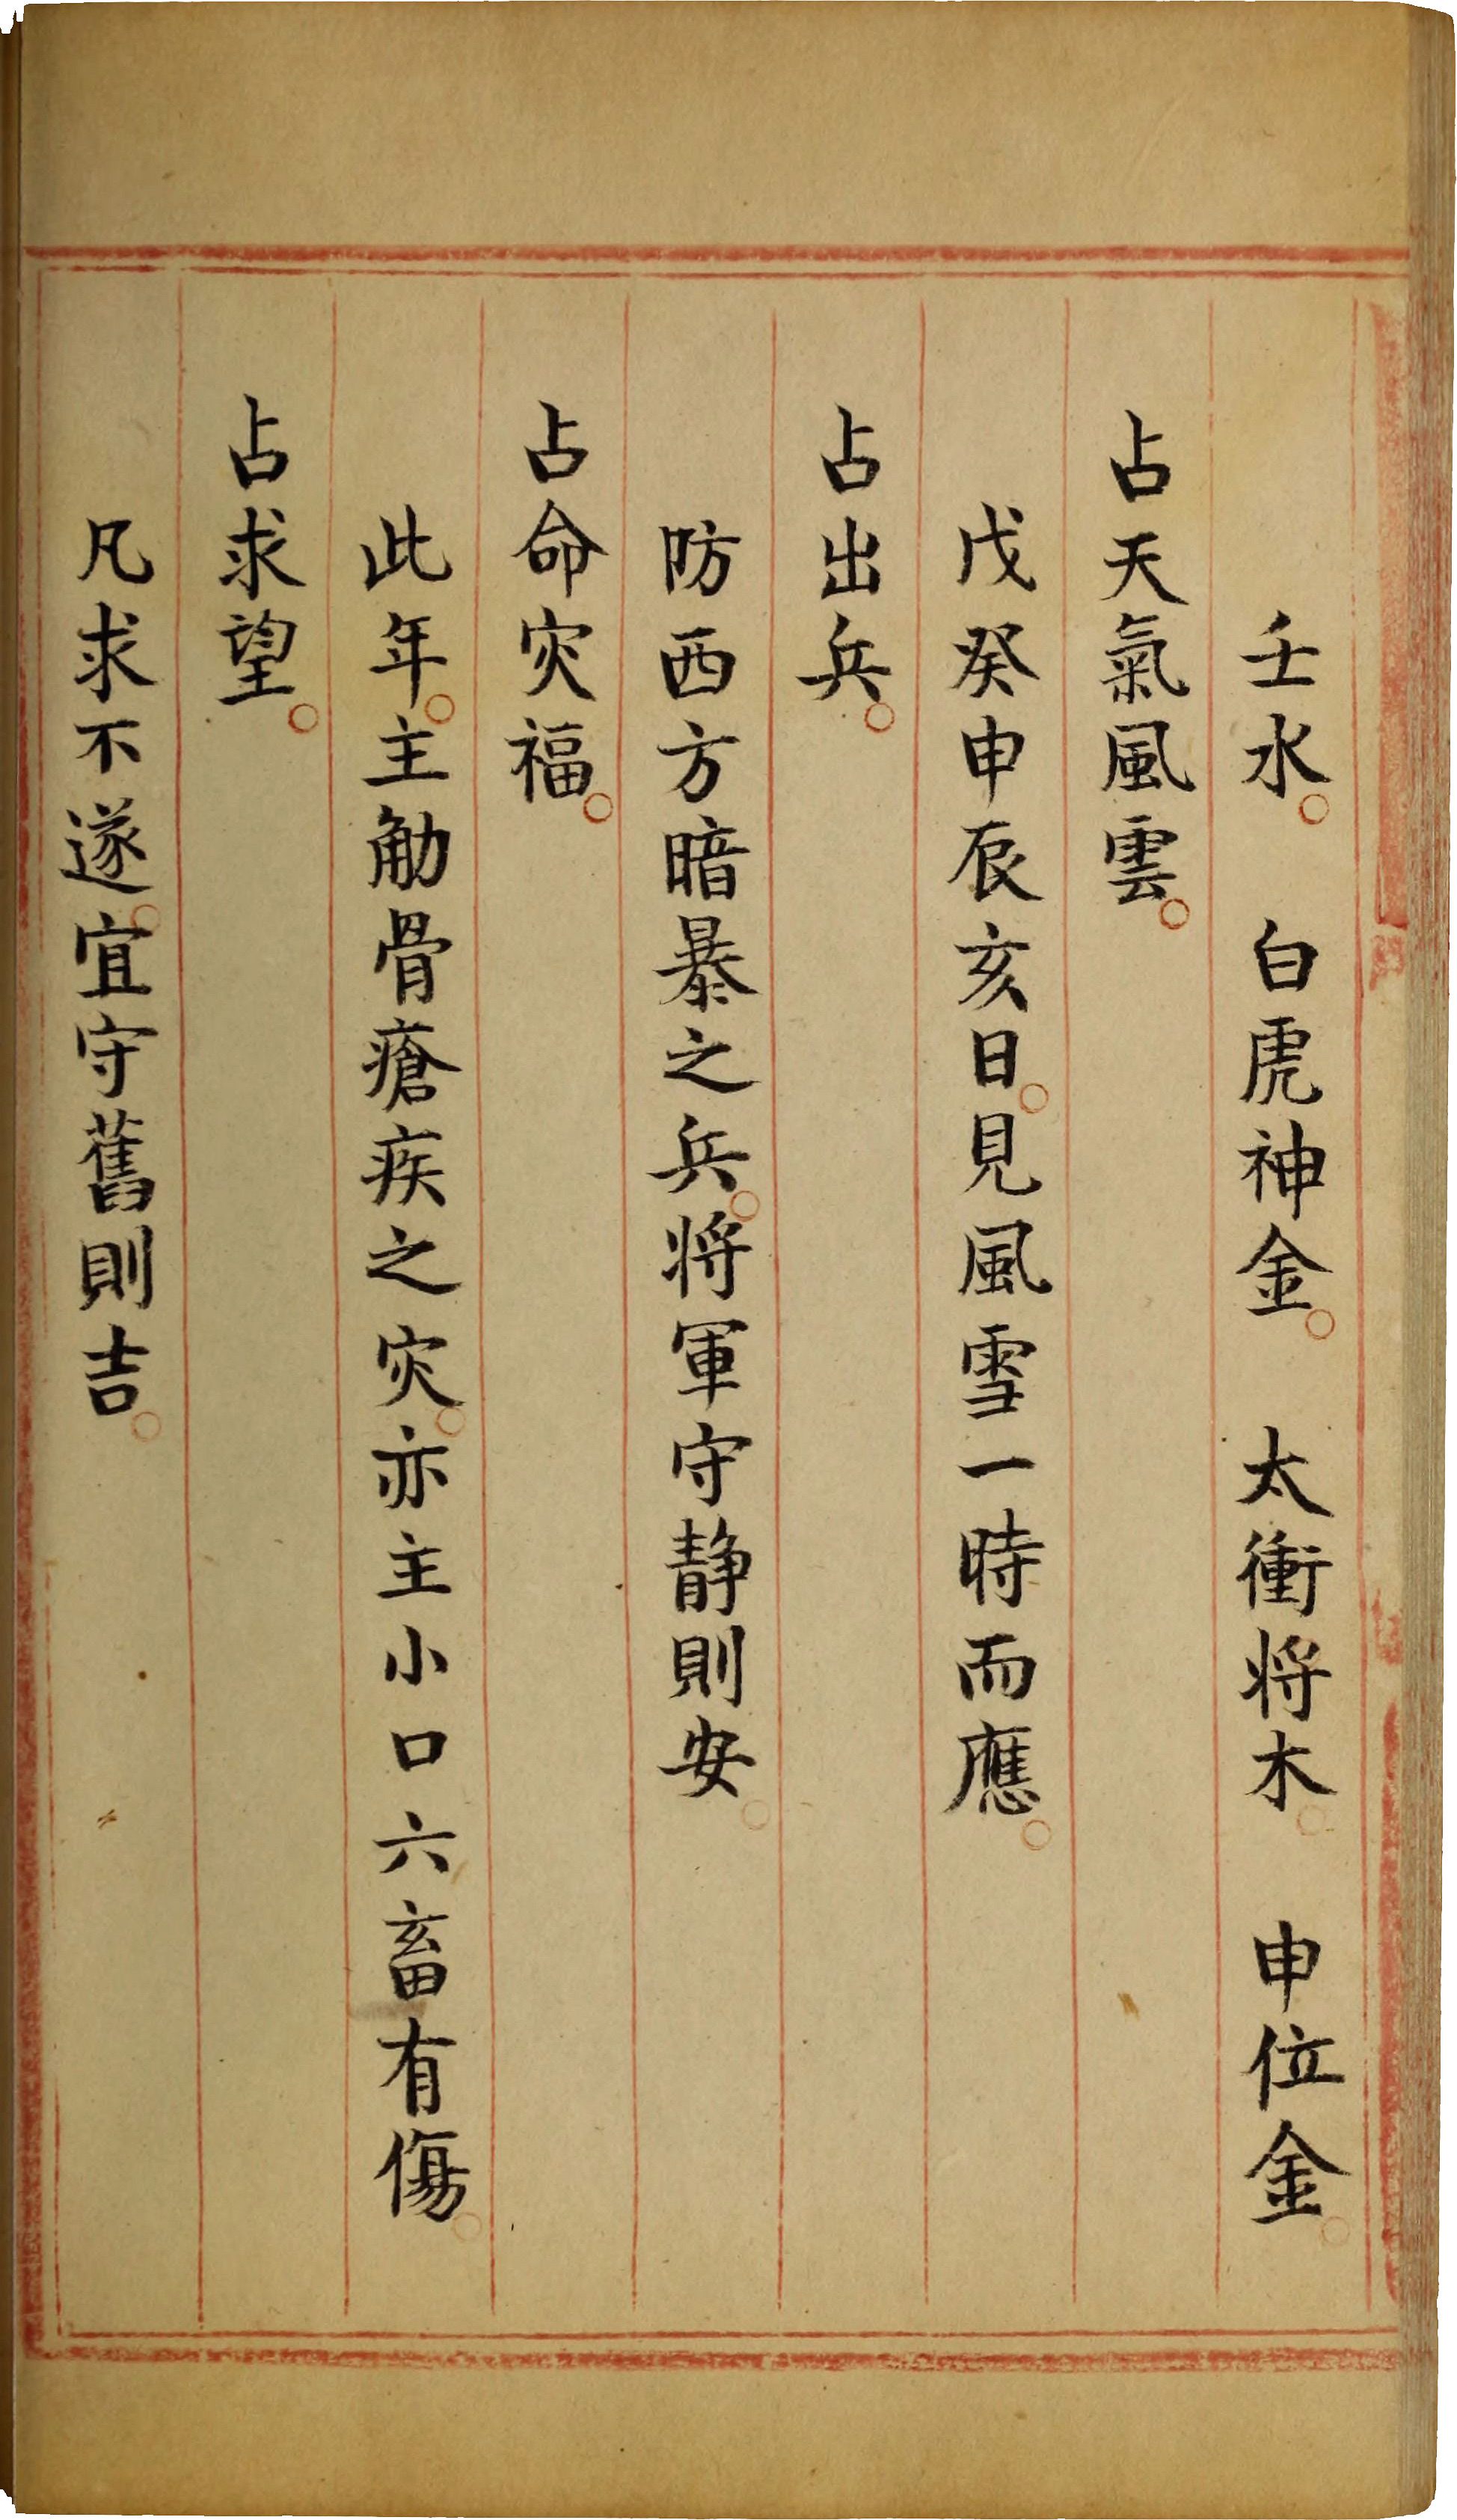 壬水。　白虎神金。　太衝将木。　申位金。
占天氣風雲。
戊癸申辰亥日。見風雪一時而應。
占出兵。
防西方暗暴之兵。将軍守静則安。
占命灾福。
此年。主觔骨瘡疾之灾。亦主小口六畜有傷。
占求望。
凡求不遂。宜守舊則吉。